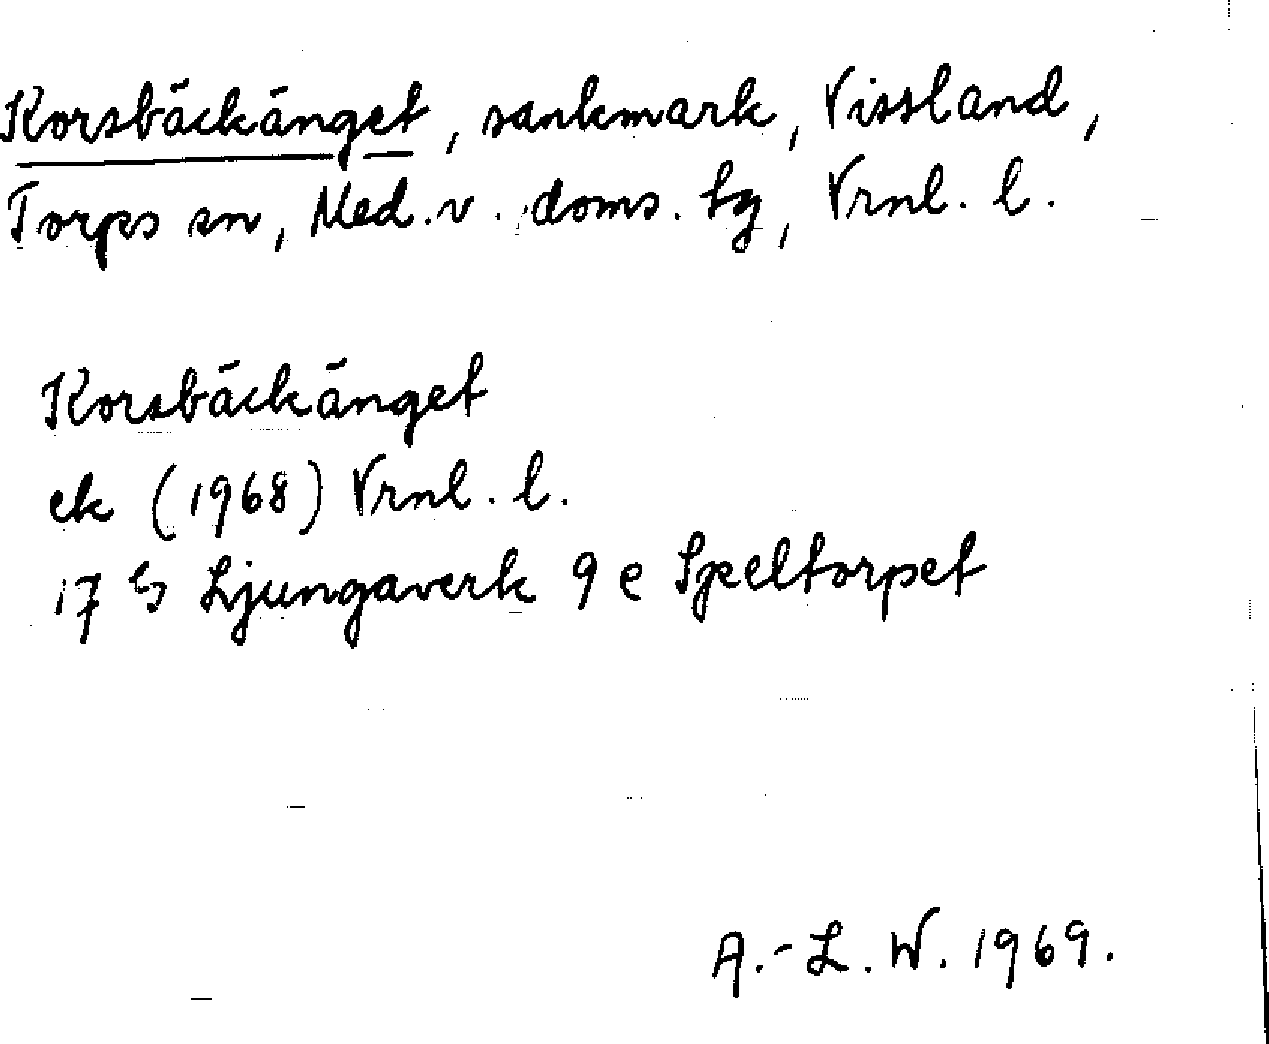 Korsbäckänget, sankmark, Vissland,
Torps sn, Med.v. doms. tg, Vrnl. l.
Korsbäckänget
ek (1968) Vrnl. l.
17 G Ljungaverk 9 e Speltorpet
A.-L. W. 1969.